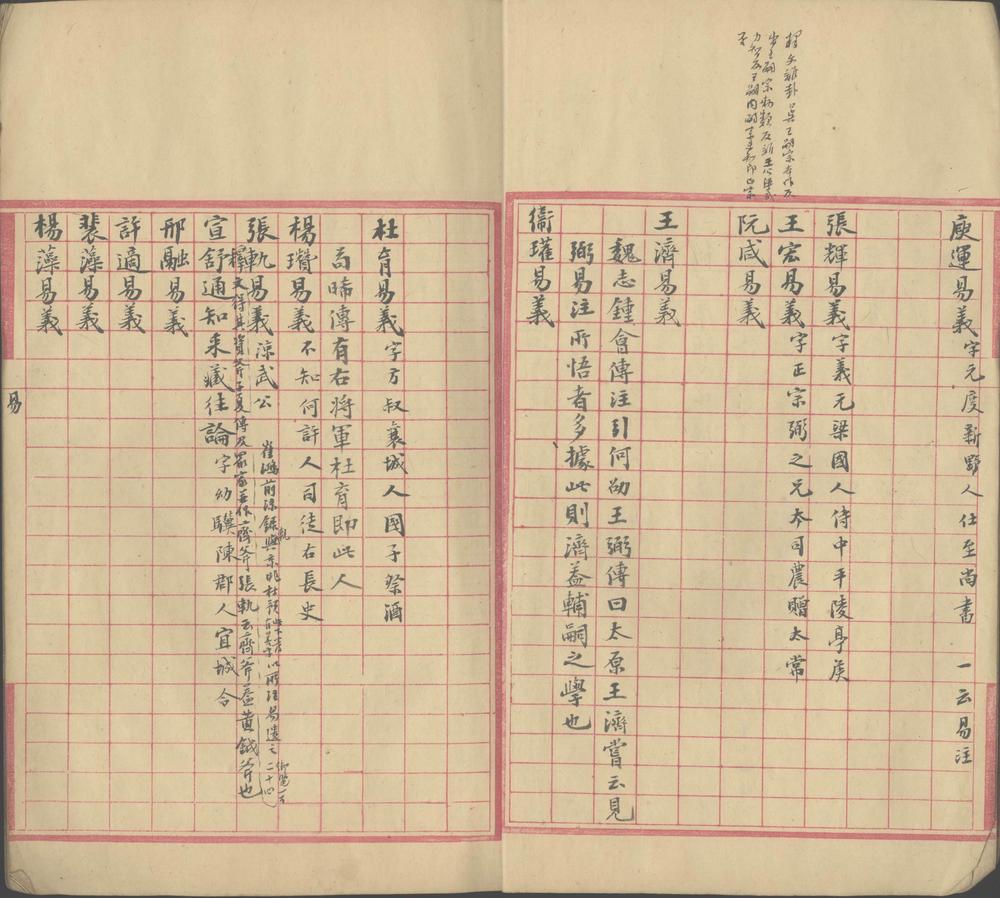 庾運易義字元度新野人仕至尚書 一云易注
張輝易義字義元梁國人侍中平陵亭矦
王宏易義字正宗弼之兄大司農贈太常
阮咸易義
王濟易義
魏志鍾會傳注引何劭王弼傳曰太原王濟嘗云見
弼易注所悟者多據此則濟益輔嗣之學也
衞瓘易義
杜育易義字方叔襄城人國子祭酒
晞傳有右將軍杜育即此人
楊瓚易義不知何許人司徒右長史
張軌易義涼武公
釋文得其資斧子夏傳及眾家並作齊斧張軌云齊斧蓋黃鉞斧也
宣舒通知來藏往論字幼驥陳郡人宜城令
邢融易義
許適易義
裴藻易義
楊藻易義
易